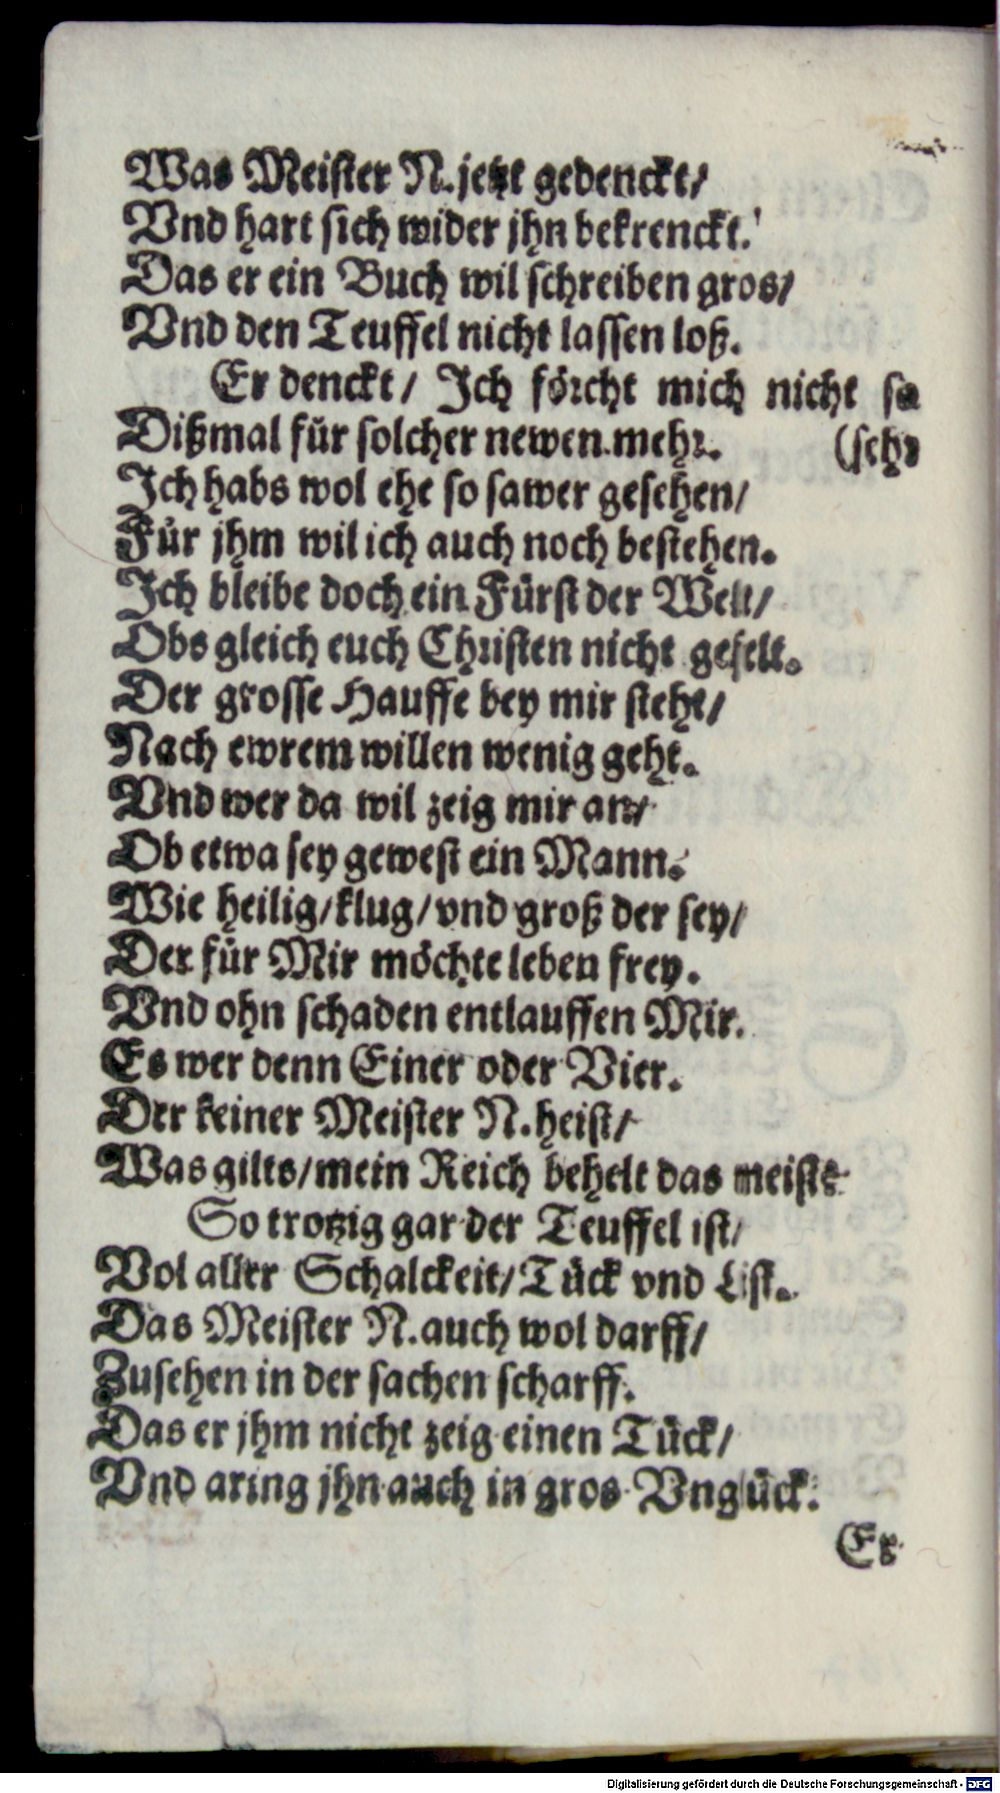 Was Meister N. jetzt gedenckt/
Vnd hart sich wider jhn bekrenckt.
Das er ein Buch wil schreiben gros/
Vnd den Teuffel nicht lassen loß.
Er denckt/ Ich förcht mich nicht so
Dißmal für solcher newen mehr. (sehr
Ich habs wol ehe so sawer gesehen/
Für jhm wil ich auch noch bestehen.
Ich bleibe doch ein Fürst der Welt/
Obs gleich euch Christen nicht gefelt.
Der grosse Hauffe bey mir steht/
Nach ewrem willen wenig geht.
Vnd wer da wil zeig mir an/
Ob etwa sey gewest ein Mann.
Wie heilig/ klug/ vnd groß der sey/
Der für Mir möchte leben frey.
Vnd ohn schaden entlauffen Mir.
Es wer denn Einer oder Vier.
Der keiner Meister N. heist/
Was gilts/ mein Reich behelt das meiste
So trotzig gar der Teuffel ist/
Vol aller Schalckeit/ Tück vnd List.
Das Meister N. auch wol darff/
Zusehen in der sachen scharff.
Das er jhm nicht zeig einen Tück/
Vnd bring jhn auch in gros Vnglück.
Er
Digitalisierung gefördert durch die Deutsche Forschungsgemeinschaft - DFG